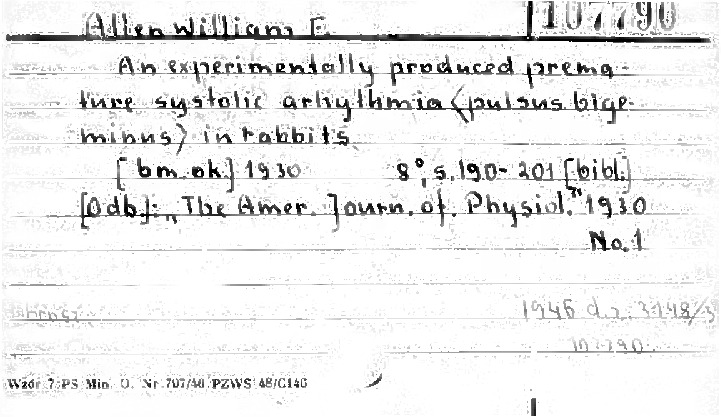 Allen William F.
107790
An experimentally produced prema-
ture systolic arhythmia (pulsus bige-
minus) in rabbits
[bm. ok.] 1930 8°, s. 190-201 [bibl.]
[Odb.]: „The Amer. Journ. of. Physiol." 1930
No. 1
1946 d. z. 3148/3
107790
Wzór 7 PS Min. O. Nr 707/46 PZWS 48/C146